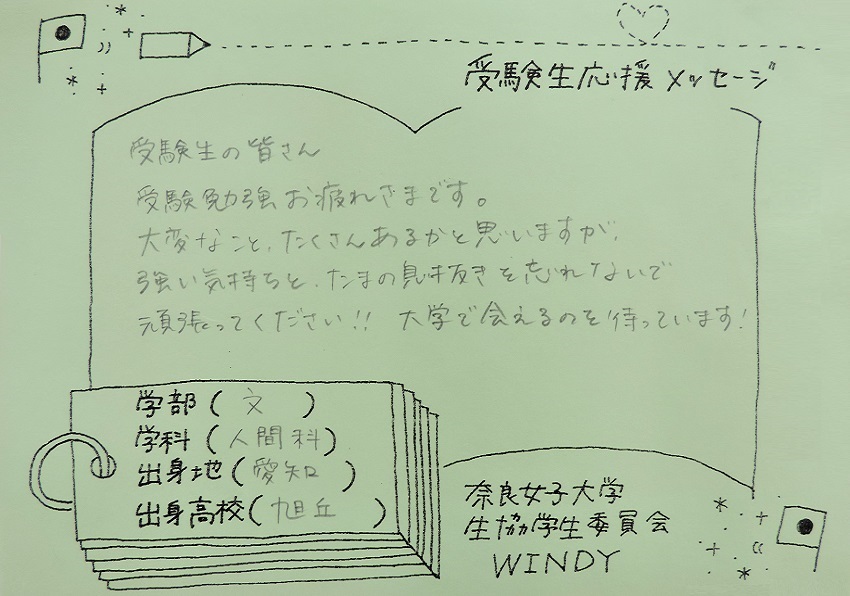 受験生応援メッセージ
受験生の皆さん
受験勉強お疲れさまです。
大変なこと、たくさんあるかと思いますが、
強い気持ちと、たまの息抜きを忘れないで
頑張ってください!! 大学で会えるのを待っています!
学部(文)
学科(人間科)
出身地(愛知)
出身高校(旭丘)
奈良女子大学
生協学生委員会
WINDY